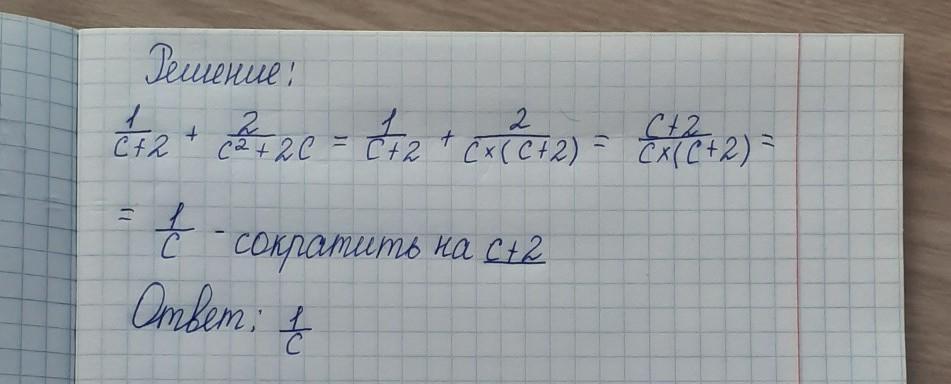 Решение:
1/(c+2) + 2/(c²+2c) = 1/(c+2) + 2/(c×(c+2)) = (c+2)/(c×(c+2)) =
= 1/c - сократить на c+2
Ответ: 1/c